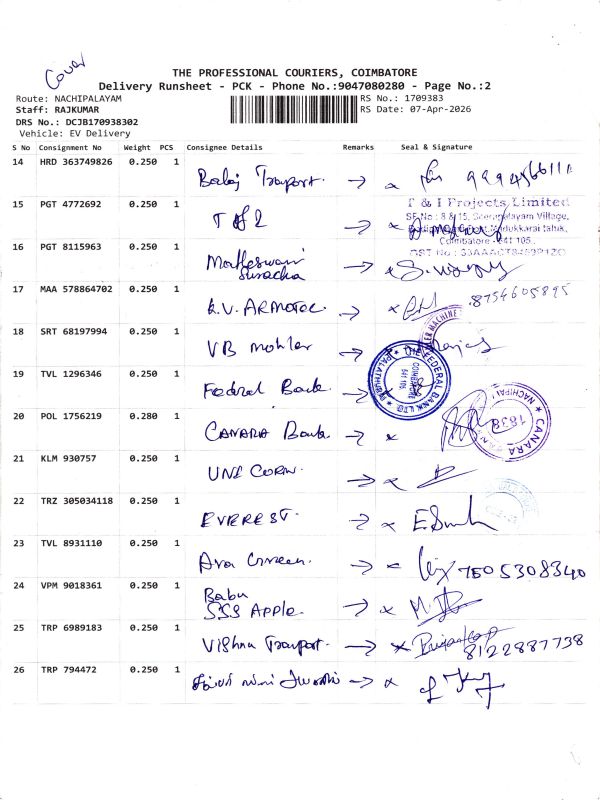 Cover
THE PROFESSIONAL COURIERS, COIMBATORE
Delivery Runsheet - PCK - Phone No.:9047080280 - Page No.:2
Route: NACHIPALAYAM
RS No.: 1709383
Staff: RAJKUMAR
RS Date: 07-Apr-2026
DRS No.: DCJB170938302
Vehicle: EV Delivery
S No Consignment No Weight PCS Consignee Details Remarks Seal & Signature
14 HRD 363749826 0.250 1
Balaj Transport
15 PGT 4772692 0.250 1 T & I Projects Limited
SF.No : 8 & 15, Seerapalayam Village,
T & I
Madukkarai taluk,
Coimbatore - 641 105.
16 PGT 8115963 0.250 1
Matheswari
17 MAA 578864702 0.250 1
K.V. ARMOTEC 8754605895
18 SRT 68197994 0.250 1
VB Mohler
19 TVL 1296346 0.250 1
THE FEDERAL BANK LTD.
COIMBATORE
641 105
Federal Bank
20 POL 1756219 0.280 1
CANARA Bank
CANARA BANK
1838
21 KLM 930757 0.250 1
UNI CORN
22 TRZ 305034118 0.250 1
EVEREST
23 TVL 8931110 0.250 1
Ava Green 7505308340
24 VPM 9018361 0.250 1
Babu
SSS Apple
25 TRP 6989183 0.250 1
Vishnu Transport 8122887738
26 TRP 794472 0.250 1